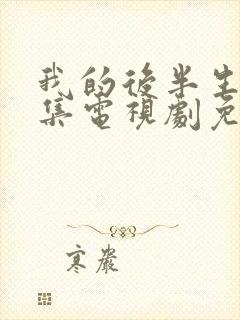 我的後半生
集電視劇免
寒嚴